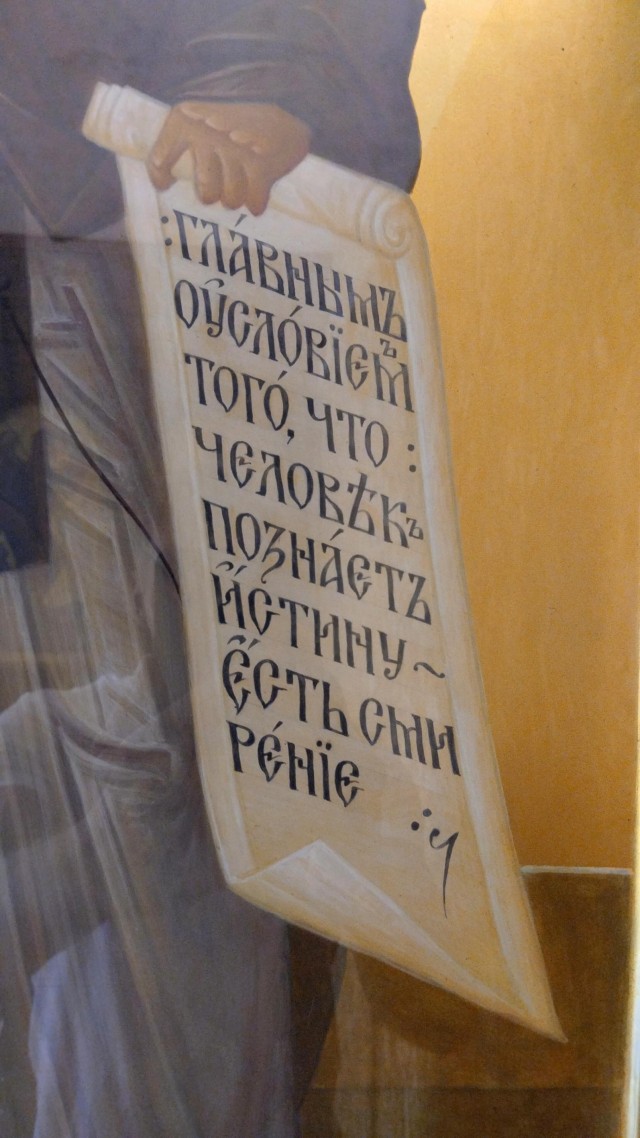 :гла́внымъ
оу҆сло́вїемъ
того́, что :
человѣкъ
позна́етъ
и҆́стину~
є҆́сть сми
ре́нїе